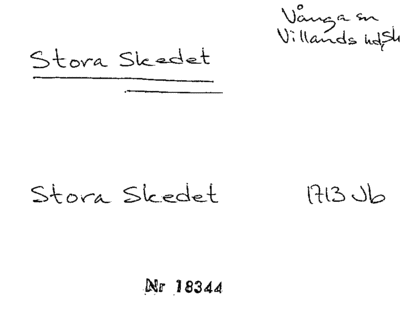 Vånga sn
Villands hd, Sk
Stora Skedet
Stora Skedet 1713 Jb
Nr 18344